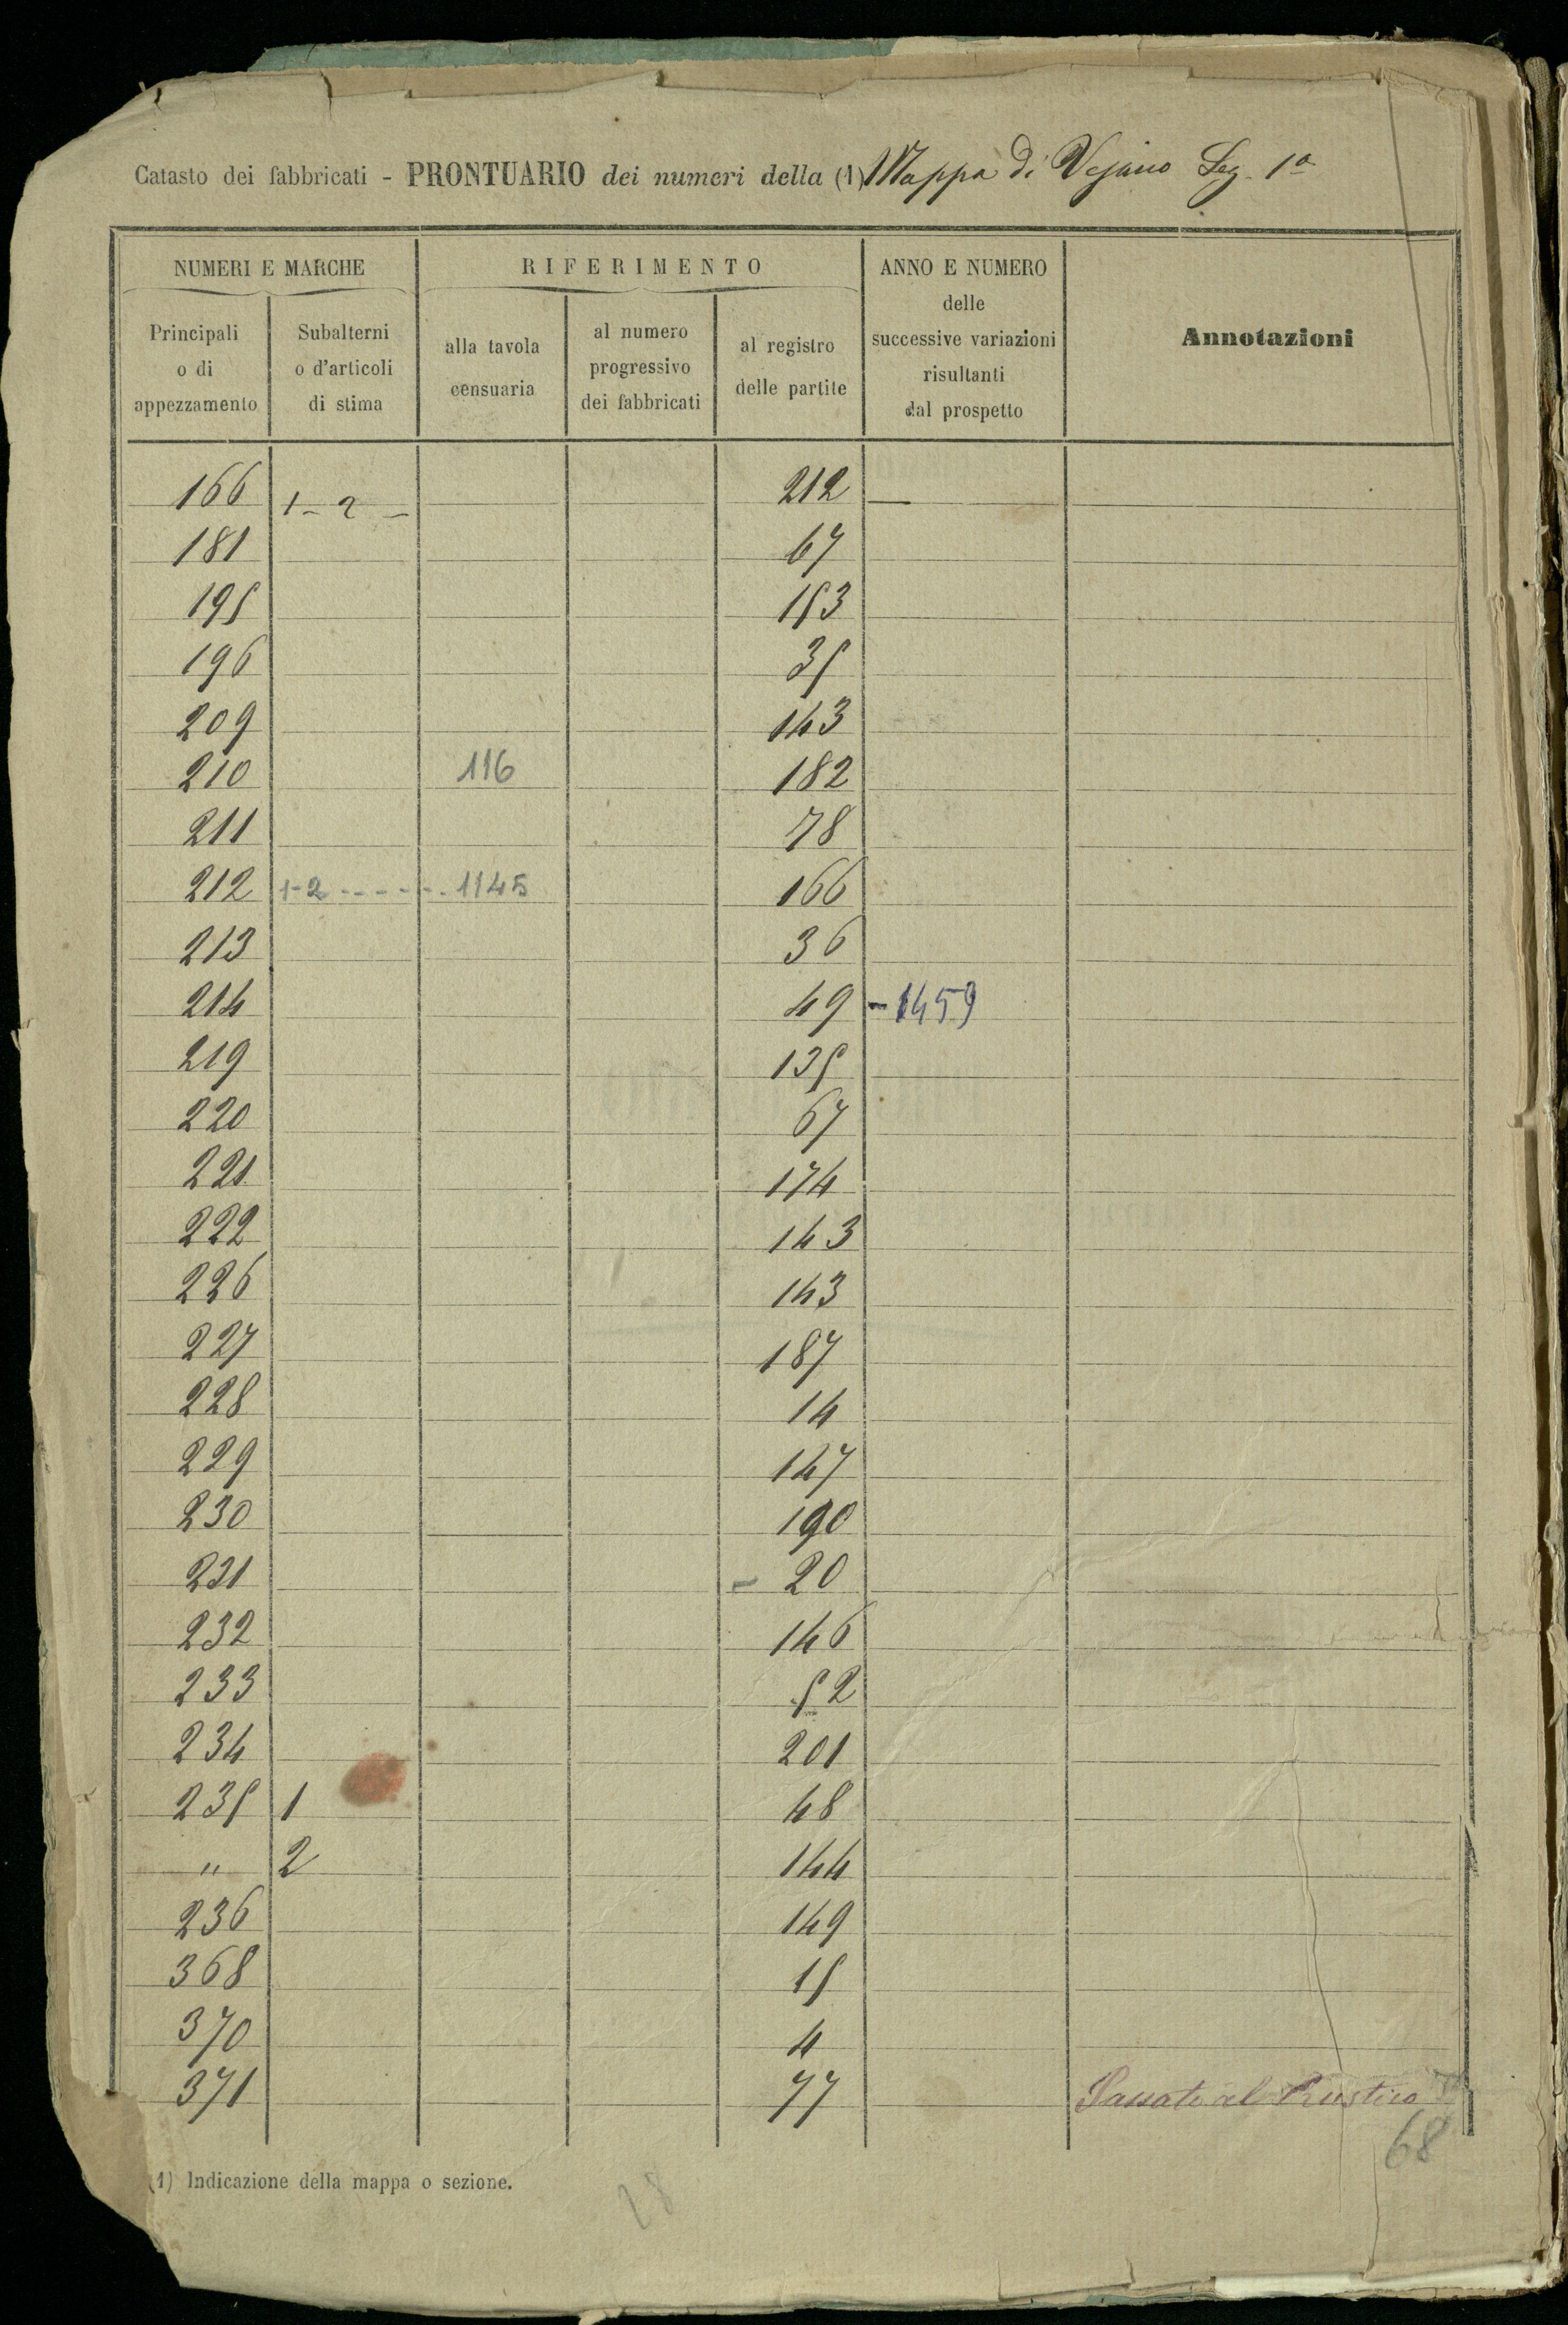 Catasto dei fabbricati - PRONTUARIO dei numeri della (1) Mappa di Vejano Sez. 1ª
NUMERI E MARCHE
RIFERIMENTO
ANNO E NUMERO
delle
successive variazioni
risultanti
dal prospetto
Annotazioni
Principali
o di
appezzamento
Subalterni
o d'articoli
di stima
alla tavola
censuaria
al numero
progressivo
dei fabbricati
al registro
delle partite
166 1-2- 212 —
181 67
195 153
196 35
209 143
210 116 182
211 78
212 1-2------ 1145 166
213 36
214 49 -1459
219 135
220 67
221 174
222 143
226 143
227 187
228 14
229 147
230 190
231 - 20
232 146
233 52
234 201
235 1 48
" 2 144
236 149
368 15
370 4
371 77 Passato al Rustico
68
(1) Indicazione della mappa o sezione.
28